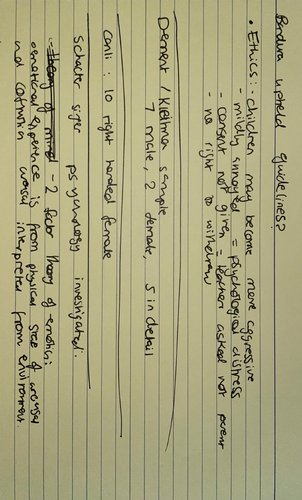 Bandura upheld guidelines?
• Ethics: - children may become more aggressive
- mildly annoyed = psychological distress
- consent not given = teachers asked not parent
- no right to withdraw
Dement / Kleitman sample
7 male, 2 female, 5 in detail
Canli : 10 right handed female
Schacter siger psychology investigated:
- theory of mind - 2 factor theory of emotion:
emotional experience is from physical state of arousal
and cognition arousal interpreted from environment.